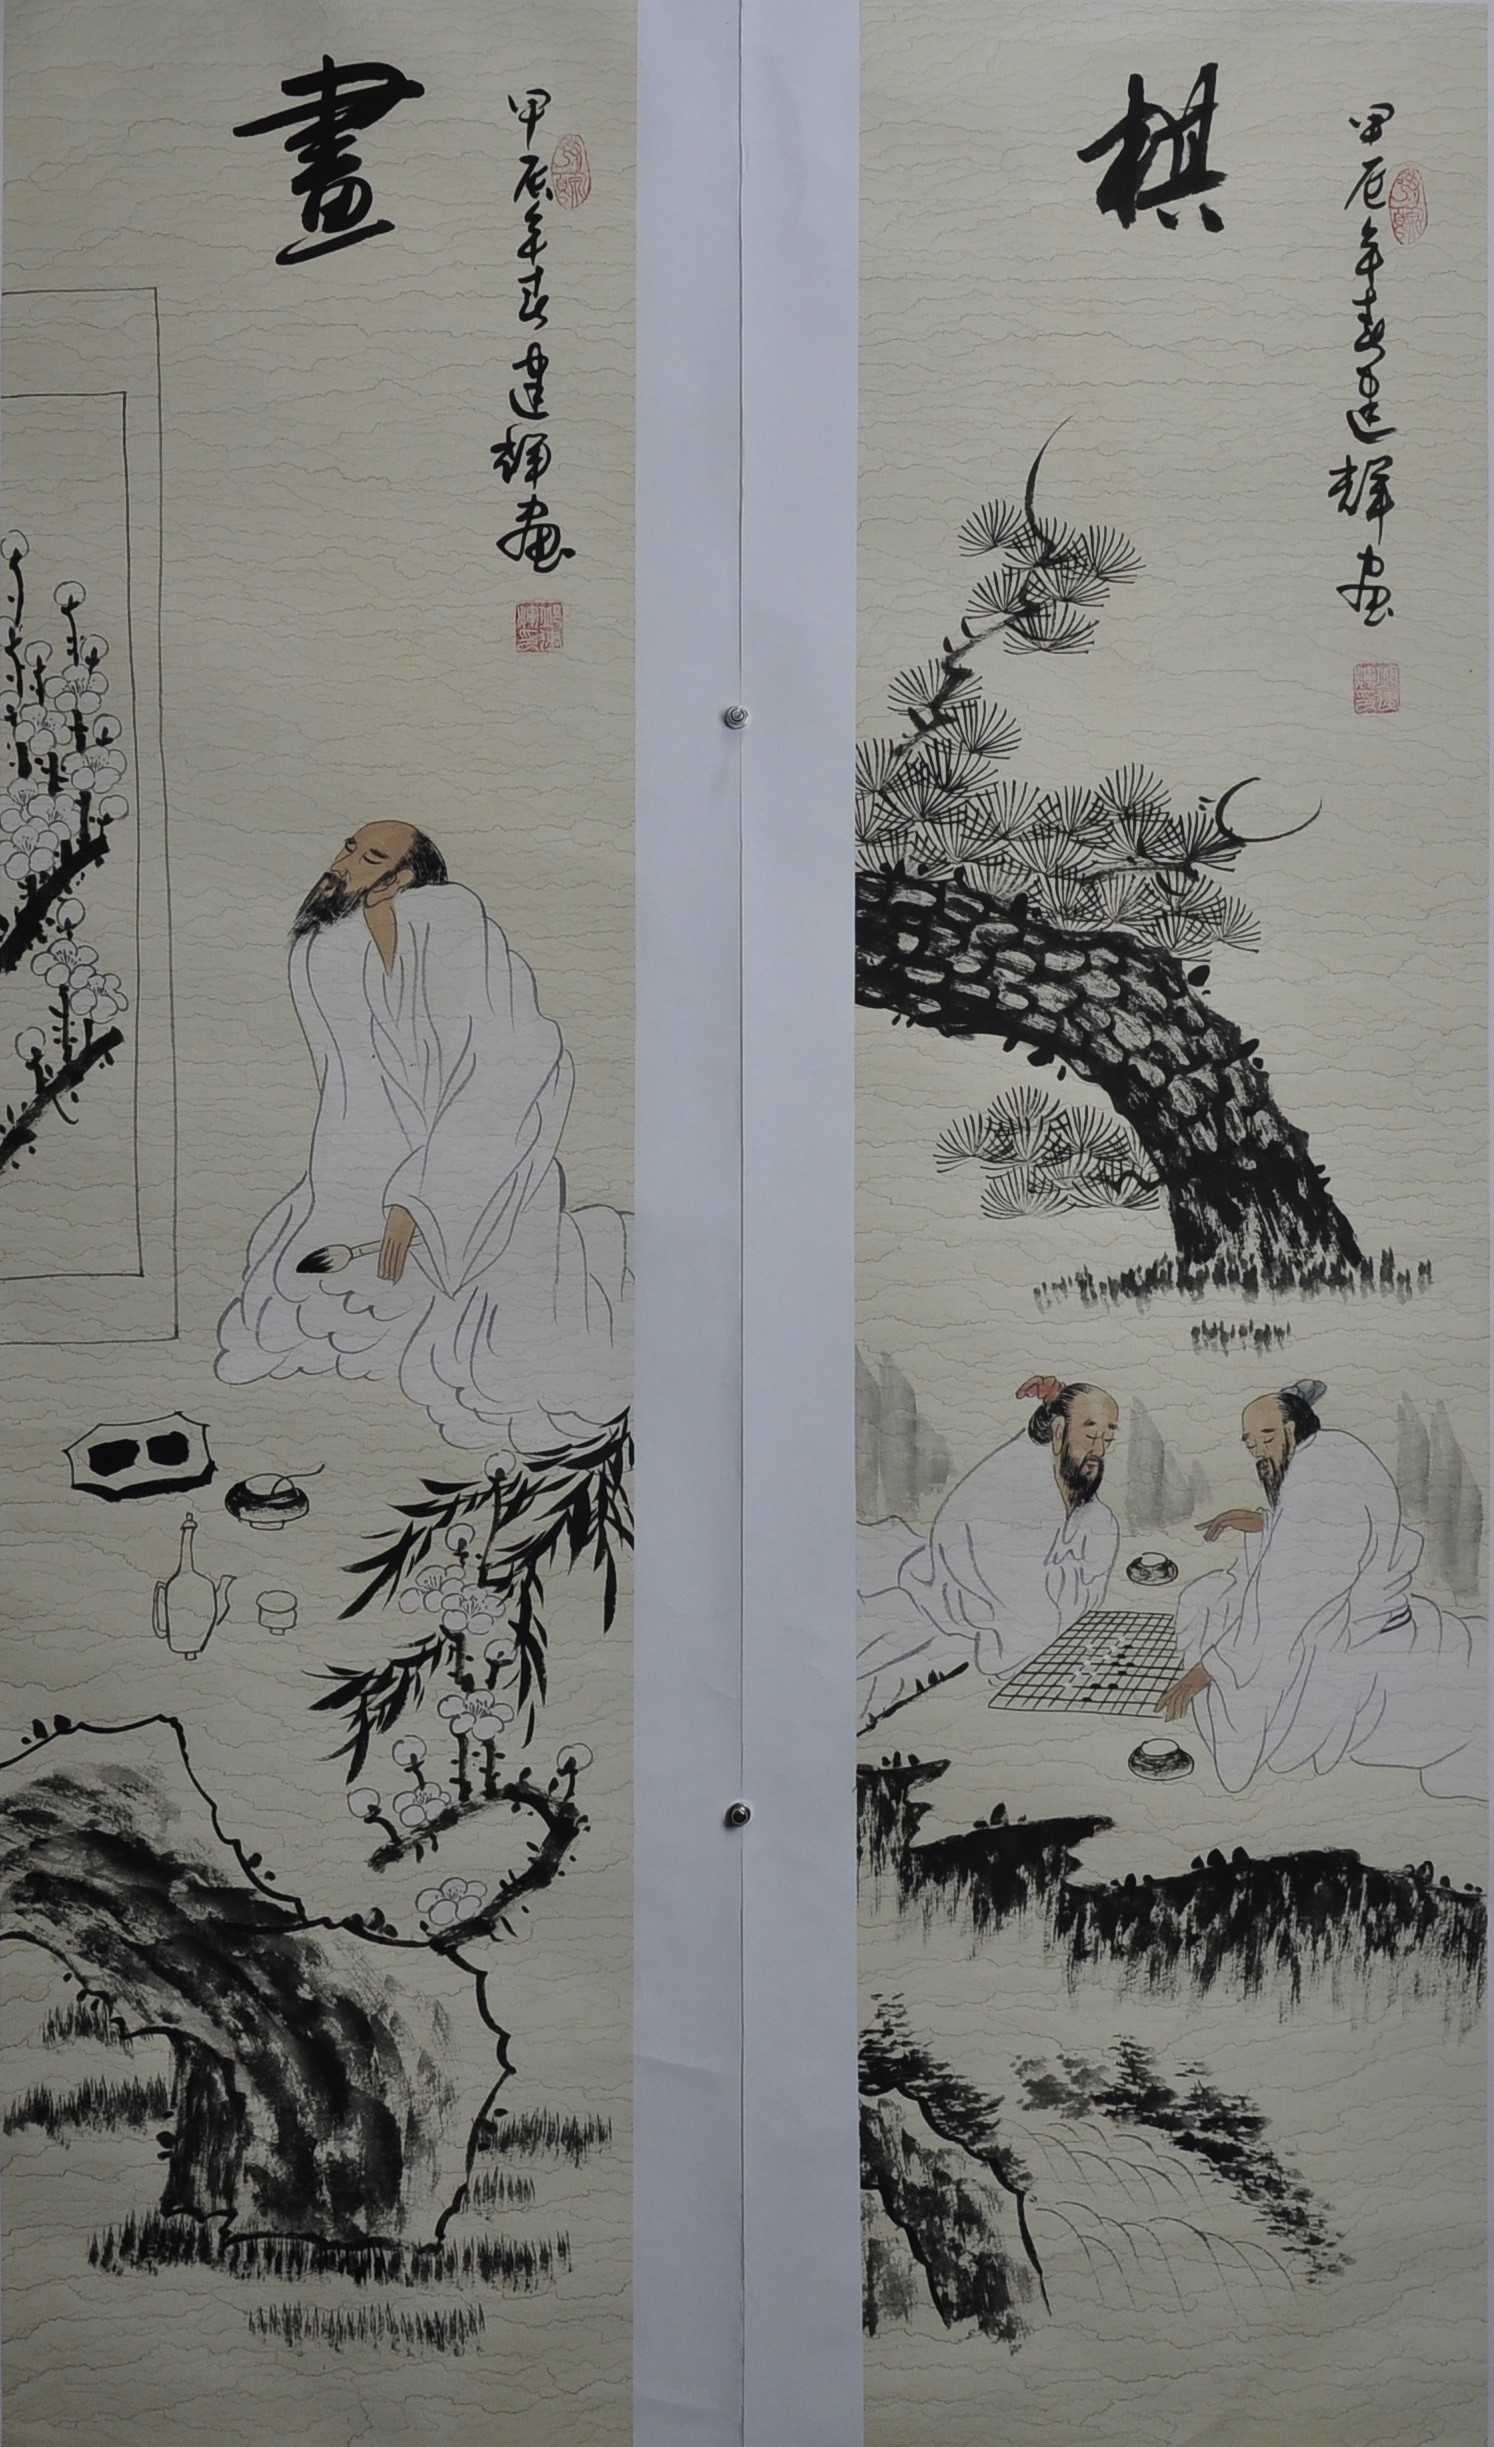 棋
甲辰年春建輝画
畫
甲辰年春建輝画